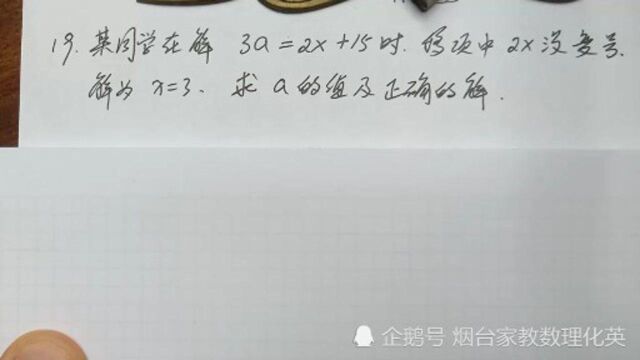 19. 某同学在解 3a=2x+15时. 移项中 2x没变号.
解为 x=3、求 a的值及正确的解.
企鹅号 烟台家教数理化英